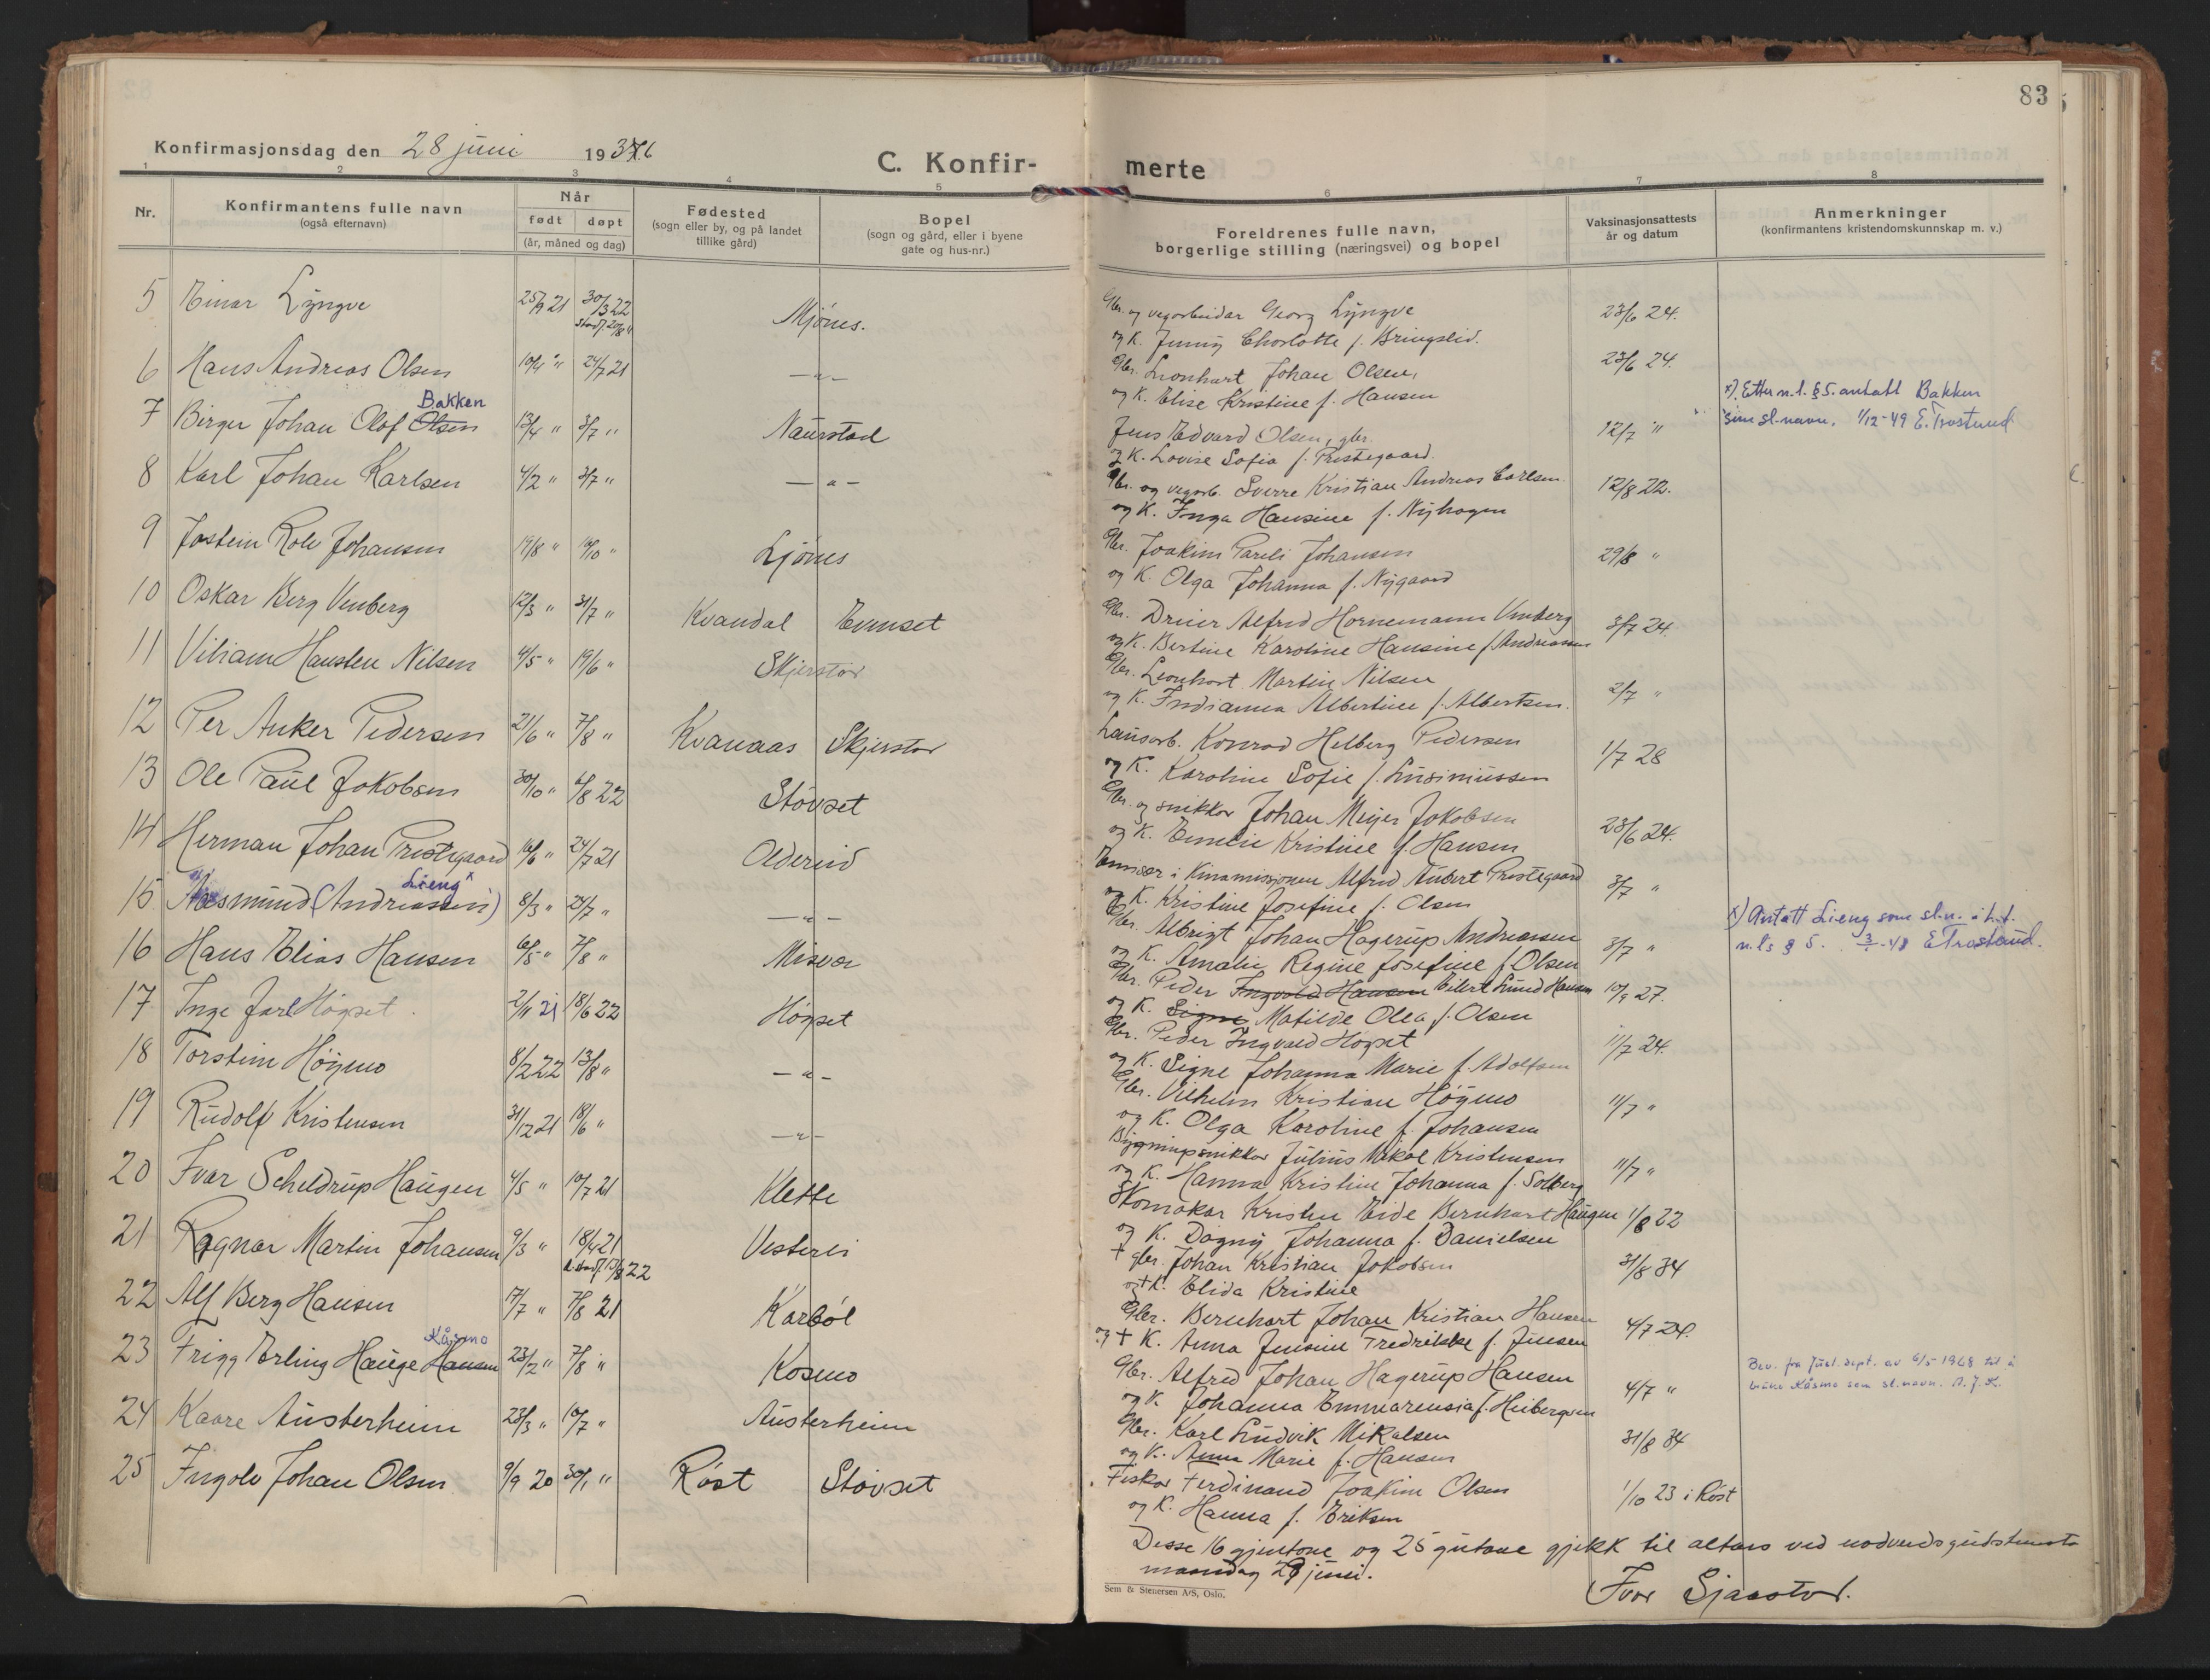 83
Konfirmasjonsdag den 28 juni 1936
C. Konfir-
merte
1 2 3 4 5 6 7 8
Nr.
Konfirmantens fulle navn
(også efternavn)
Når
født døpt
(år, måned og dag)
Fødested
(sogn eller by, og på landet
tillike gård)
Bopel
(sogn og gård, eller i byene
gate og hus-nr.)
Foreldrenes fulle navn,
borgerlige stilling (næringsvei) og bopel
Vaksinasjonsattests
år og datum
Anmerkninger
(konfirmantens kristendomskunnskap m. v.)
5 Einar Lyngve 25/9 21 30/3 22 Mjønes. Gbr. og vegarbeidar Georg Lyngve 23/6 24.
og K. Jenny Charlotte f. Bringslid.
6 Hans Andreas Olsen 10/4 " 24/7 21 —"— Gbr. Leonhart Johan Olsen, 23/6 24.
og K. Elise Kristine f. Hansen
Bakken
7 Birger Johan Olaf Olsen 13/4 " 3/7 " Naurstad Jens Edvard Olsen, gbr. 12/7 "
og K. Lovise Sofia f. Prestegaard.
x) Etter n.l. § 5. antatt Bakken
som sl.navn. 1/12-49 E. Trostrud
8 Karl Johan Karlsen 4/2 " 3/7 " —"— Gbr. og vegarb. Sverre Kristian Andreas Carlsen 12/8 22.
og K. Inga Hansine f. Nyhagen
9 Jostein Rolv Johansen 19/8 " 16/10 " Ljønes Gbr. Joakim Pareli Johansen 29/8 "
og K. Olga Johanna f. Nygaard
10 Oskar Berg Venberg 12/3 " 31/7 " Kvandal Evenset Gbr. Dreier Alfred Hornemann Venberg 3/7 24.
og K. Bertine Karoline Hansine f. Andreassen
11 Viliam Hansten Nilsen 4/5 " 19/6 " Skjerstad Gbr. Leonhart Martin Nilsen 2/7 "
og K. Indianna Albertine f. Albertsen.
12 Per Anker Pedersen 21/6 " 7/8 " Kvanaas Skjerstad Lausarb. Konrad Helberg Pedersen 1/7 28
og K. Karoline Sofie f.
13 Ole Paul Jakobsen 30/10 " 6/8 22 Støvset Gbr. og snikkar Johan Meyer Jakobsen 23/6 24.
og K. Emelie Kristine f. Hansen
14 Herman Johan Prestegaard 16/6 " 24/7 21 Oldereid Emisær i Kinamissjonen Alfred Aubert Prestegaard 3/7 "
og K. Kristine Josefine f. Olsen
Lieng x
15 Aasmund (Andreassen) 8/3 " 24/7 " —"— Gbr. Albrigt Johan Hagerup Andreassen 3/7 "
og K. Amalie Regine Josefine f. Olsen
x) Antatt Lieng som sl.n. i h.t.
n.l. § 5. 3/-48 E Trostrud.
16 Hans Elias Hansen 6/5 " 7/8 " Misvær Gbr. Peder Ingvald Hansen Eilert Lund Hansen 10/9 27.
og K. Signe Matilde Olea f. Olsen
17 Inge Jarl Høgset 2/11 21 18/6 22 Høgset Gbr. Peder Ingvald Høgset 11/7 24.
og K. Signe Johanna Marie f. Adolfsen
18 Torstein Høgmo 8/2 22 13/8 " —"— Gbr. Vilhelm Kristian Høgmo 11/7 "
og K. Olga Karoline f. Johansen
19 Rudolf Kristensen 31/12 21 18/6 " —"— Bygningssnikkar Julius Mikal Kristensen 11/7 "
og K. Hanna Kristine Johanna f. Solberg
20 Ivar Scheldrup Haugen 4/5 " 10/7 21 Klette Skomakar Kristen Eide Bernhart Haugen 1/8 22
og K. Dagny Johanna f. Danielsen
21 Ragnar Martin Johansen 9/3 " 18/4 21 Vesterli † gbr. Johan Kristian Jakobsen 31/8 34
og † K. Elida Kristine
22 Alf Berg Hansen 17/7 " 7/8 21 Karbøl Gbr. Bernhart Johan Kristian Hansen 4/7 24.
og † K. Anna Jensine Fredrikke f. Jensen
Kåsmo
23 Frigg Erling Hauge Hansen 23/2 " 7/8 " Kosmo Gbr. Alfred Johan Hagerup Hansen 4/7 "
og K. Johanna Emmarensia f. Heibergsen
Bev. fra Just.dept. av 6/5-1968 til å
bruke Kåsmo som sl.navn.
24 Kaare Austerheim 23/3 " 10/7 " Austerheim Gbr. Karl Ludvik Mikalsen 31/8 34
og K. Anna Marie f. Hansen
25 Ingolv Johan Olsen 9/9 20 30/1 " Røst Støvset Fiskar Ferdinand Joakim Olsen 1/10 23 i Røst
og K. Hanna f. Eriksen
Desse 16 gjentone og 25 gutane gjekk til altars ved nadverdsgudstenesta
maandag 29 juni.
Ivar Sjaastad.
Sem & Stenersen A/S, Oslo.